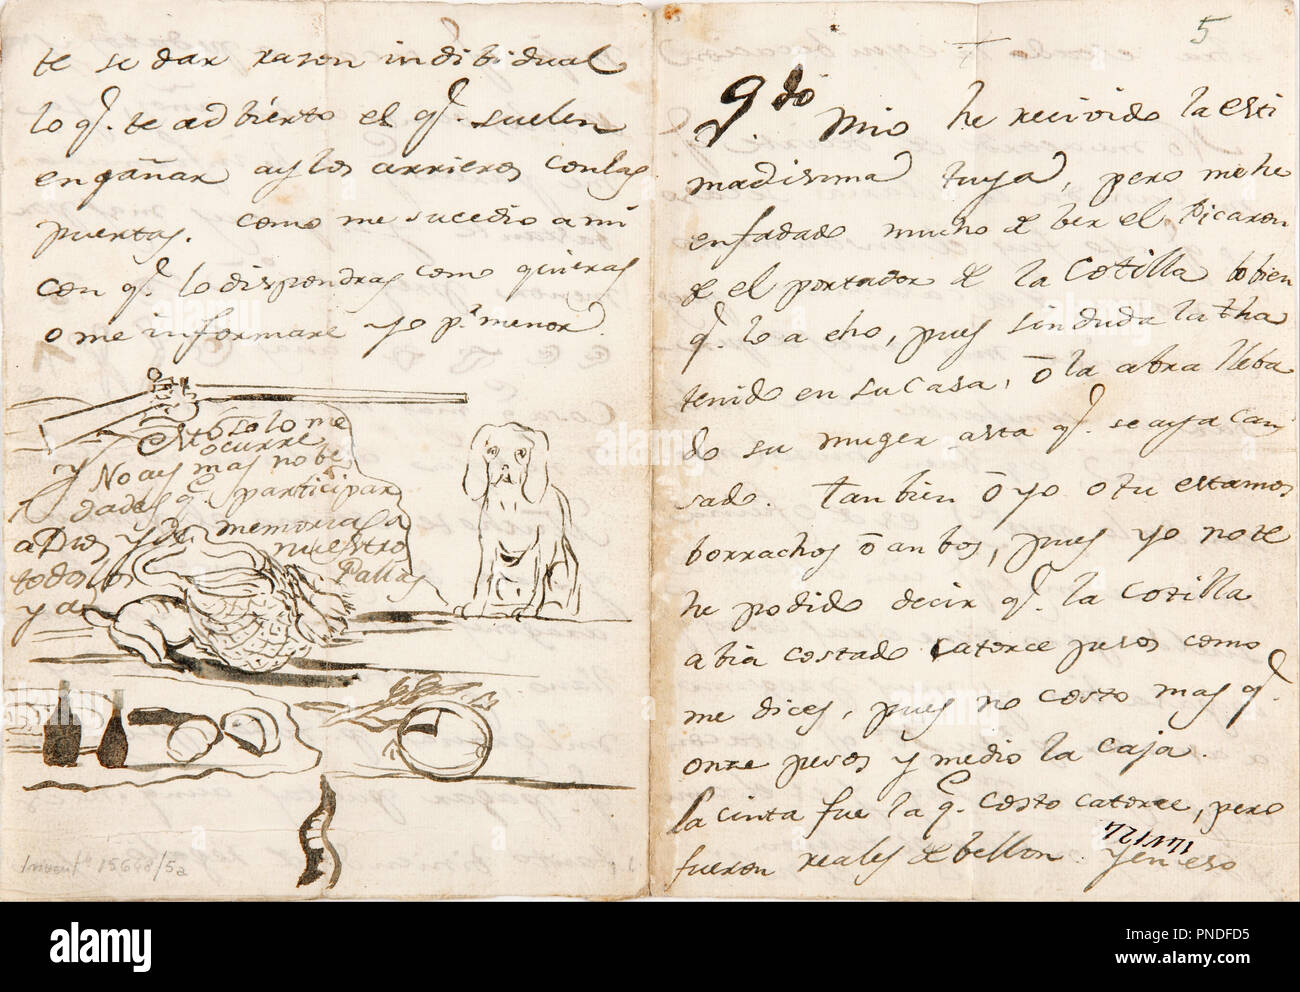 te se dar razon indibidual
lo q.e te adbierto el q.e suelen
engañar ay los arrieros con las
puertas. como me sucedio a mi
con q.e lo dispondras como quieras
o me informare yo p.r menor.
Esto solo me
ocurre
y No ay mas nobe
dades q.e participar
a Dios y de memorias a
todos los nuestro
y a Pallas
Invent.º 15648/5a
5
Q.do Mio he recivido la esti
madisima tuya, pero me he
enfadado mucho de ber el Picaron
de el portador de la Cotilla lo bien
q.e lo a eho, pues sin duda la tha
tenido en su casa, ō la abra lleba
do su muger asta q.e se aya can
sado. Tanbien ō yo o tu estamos
borrachos ō anbos, pues yo no te
he podido decir q.e la Cotilla
abia costado catorce pesos como
me dices, pues no costo mas q.e
onze pesos y medio la caja.
la cinta fue la q.e costo catorce, pero
fueron reales de bellon. y en eso
alamy
Image ID: PNDFD5
www.alamy.com